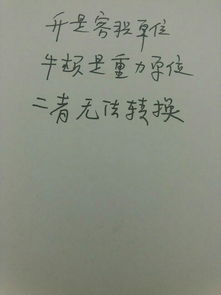 升是容积单位
牛顿是重力单位
二者无法转换